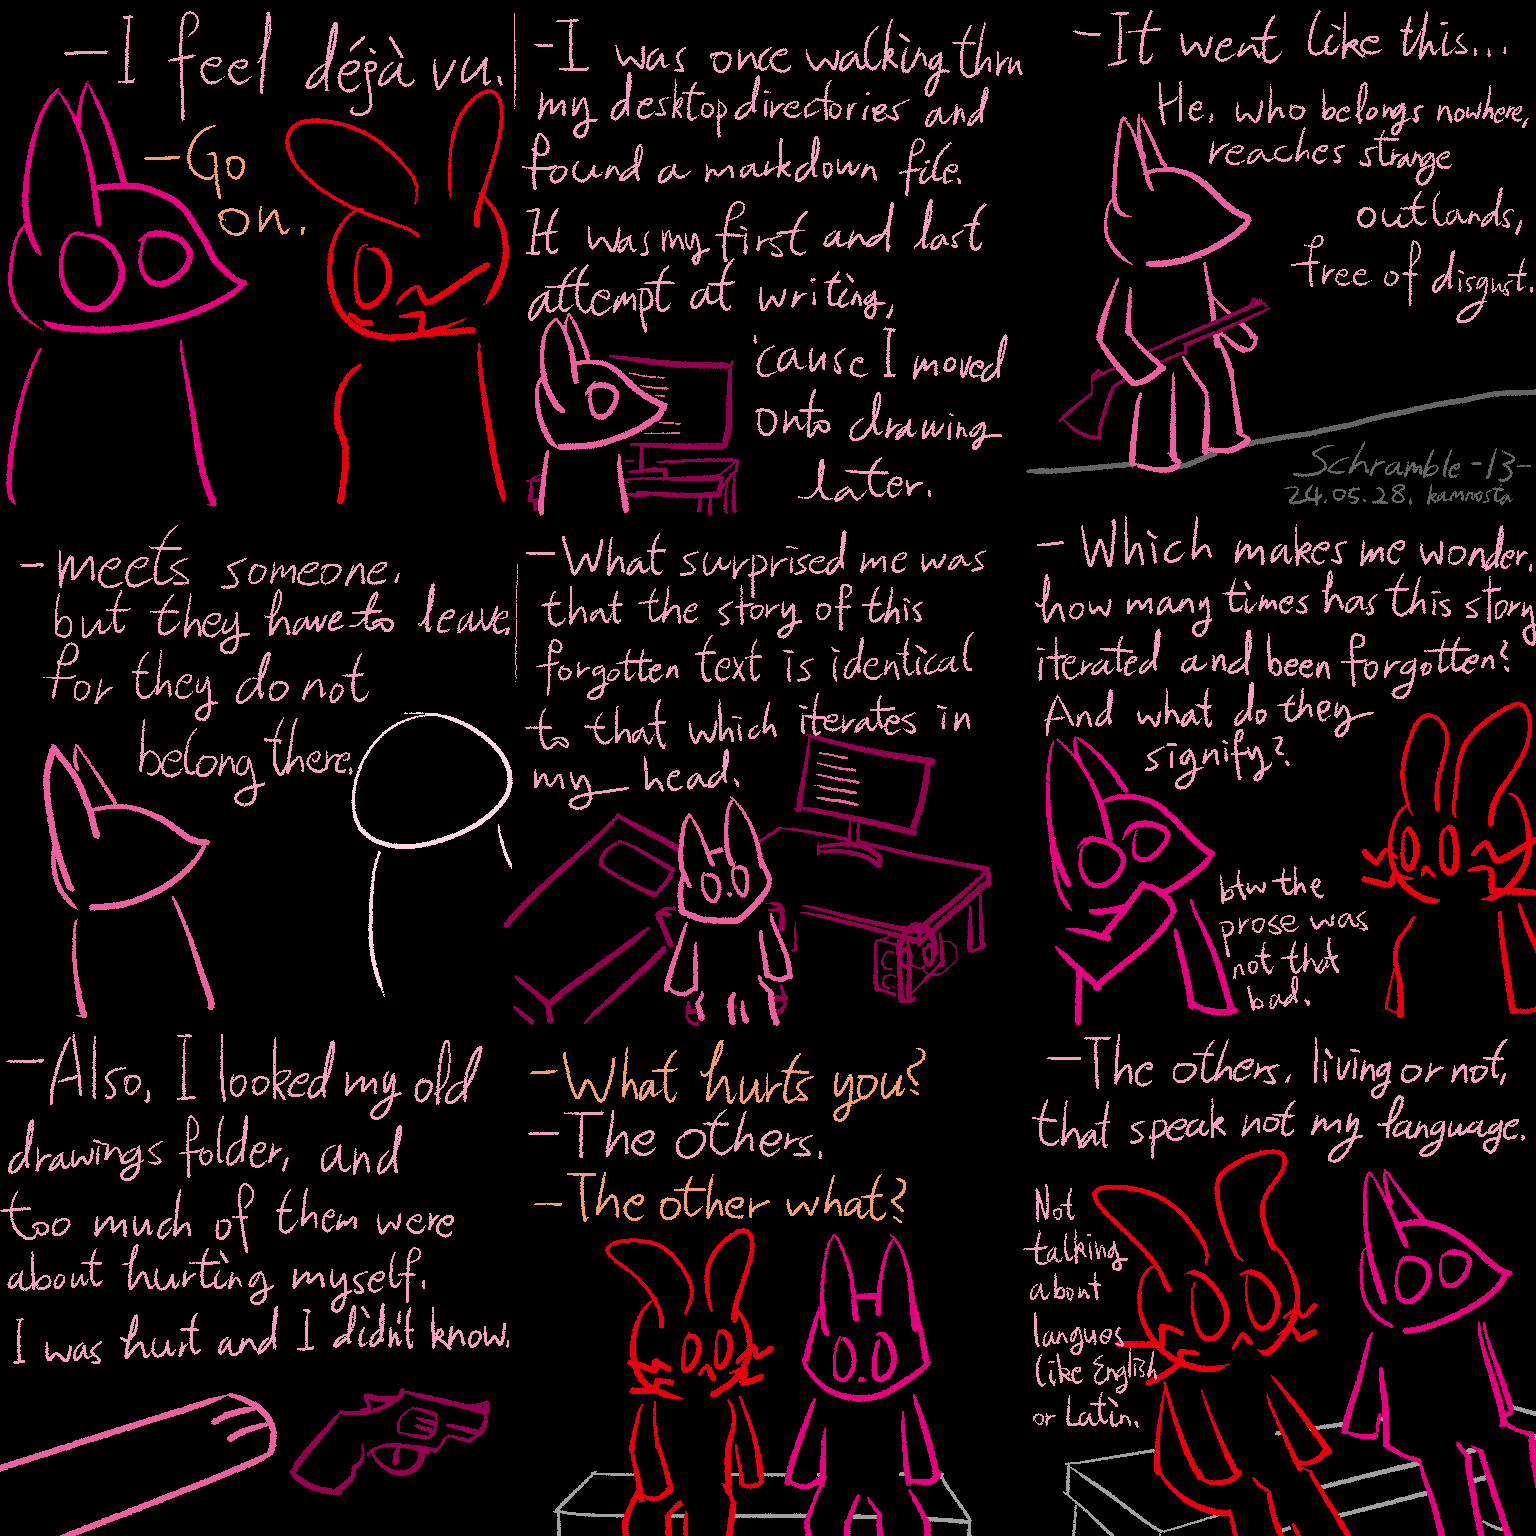 —I feel déjà vu.
—Go
on.
—I was once walking thru
my desktop directories and
found a markdown file.
It was my first and last
attempt at writing,
'cause I moved
onto drawing
later.
—It went like this...
He, who belongs nowhere,
reaches strange
outlands,
free of disgust.
Schramble -13-
24.05.28. kamnosta
—meets someone.
but they have to leave.
for they do not
belong there.
—What surprised me was
that the story of this
forgotten text is identical
to that which iterates in
my head.
—Which makes me wonder.
how many times has this story
iterated and been forgotten?
And what do they
signify?
btw the
prose was
not that
bad.
—Also, I looked my old
drawings folder, and
too much of them were
about hurting myself.
I was hurt and I didn't know.
—What hurts you?
—The others.
—The other what?
—The others, living or not,
that speak not my language.
Not
talking
about
langues
like English
or Latin.